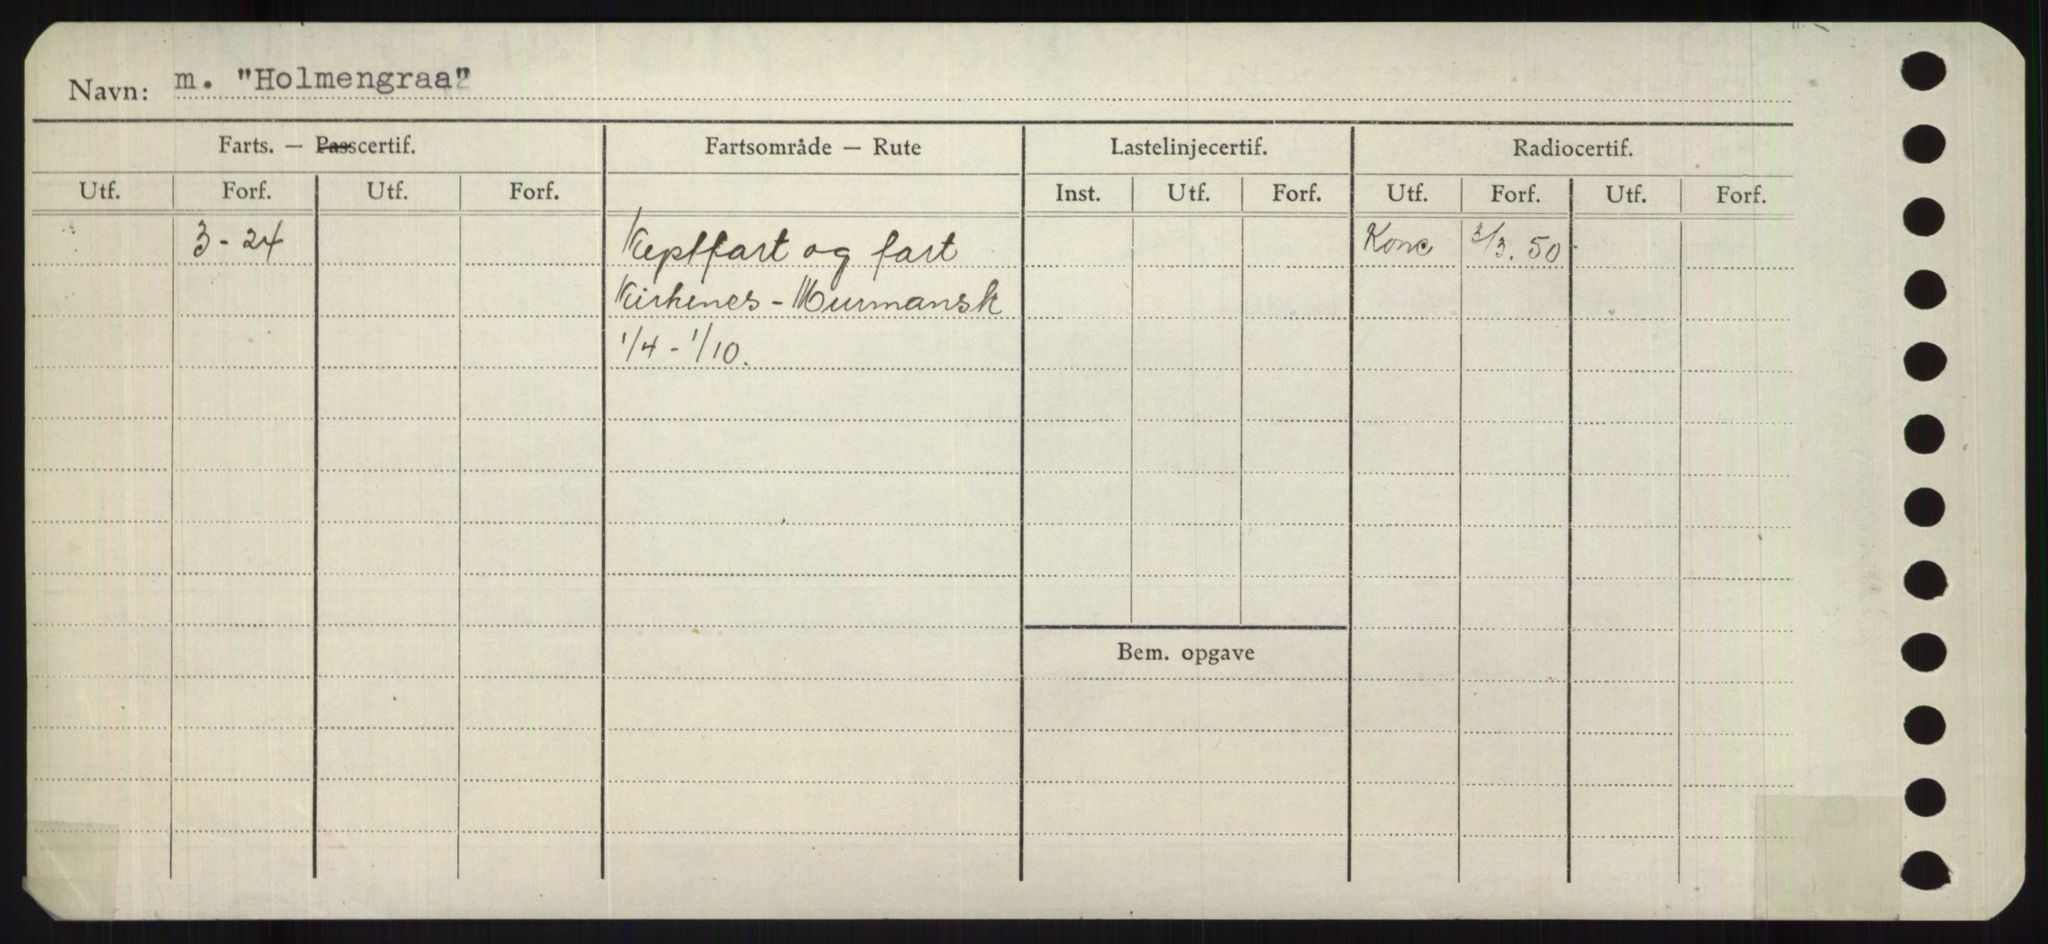 Navn: m. "Holmengraa"
Farts. — Passcertif. Fartsområde — Rute Lastelinjecertif. Radiocertif.
Utf. Forf. Utf. Forf. Inst. Utf. Forf. Utf. Forf. Utf. Forf.
3 - 24 Kystfart og fart Konc 3/3. 50
Kirkenes - Murmansk
1/4 - 1/10.
Bem. opgave